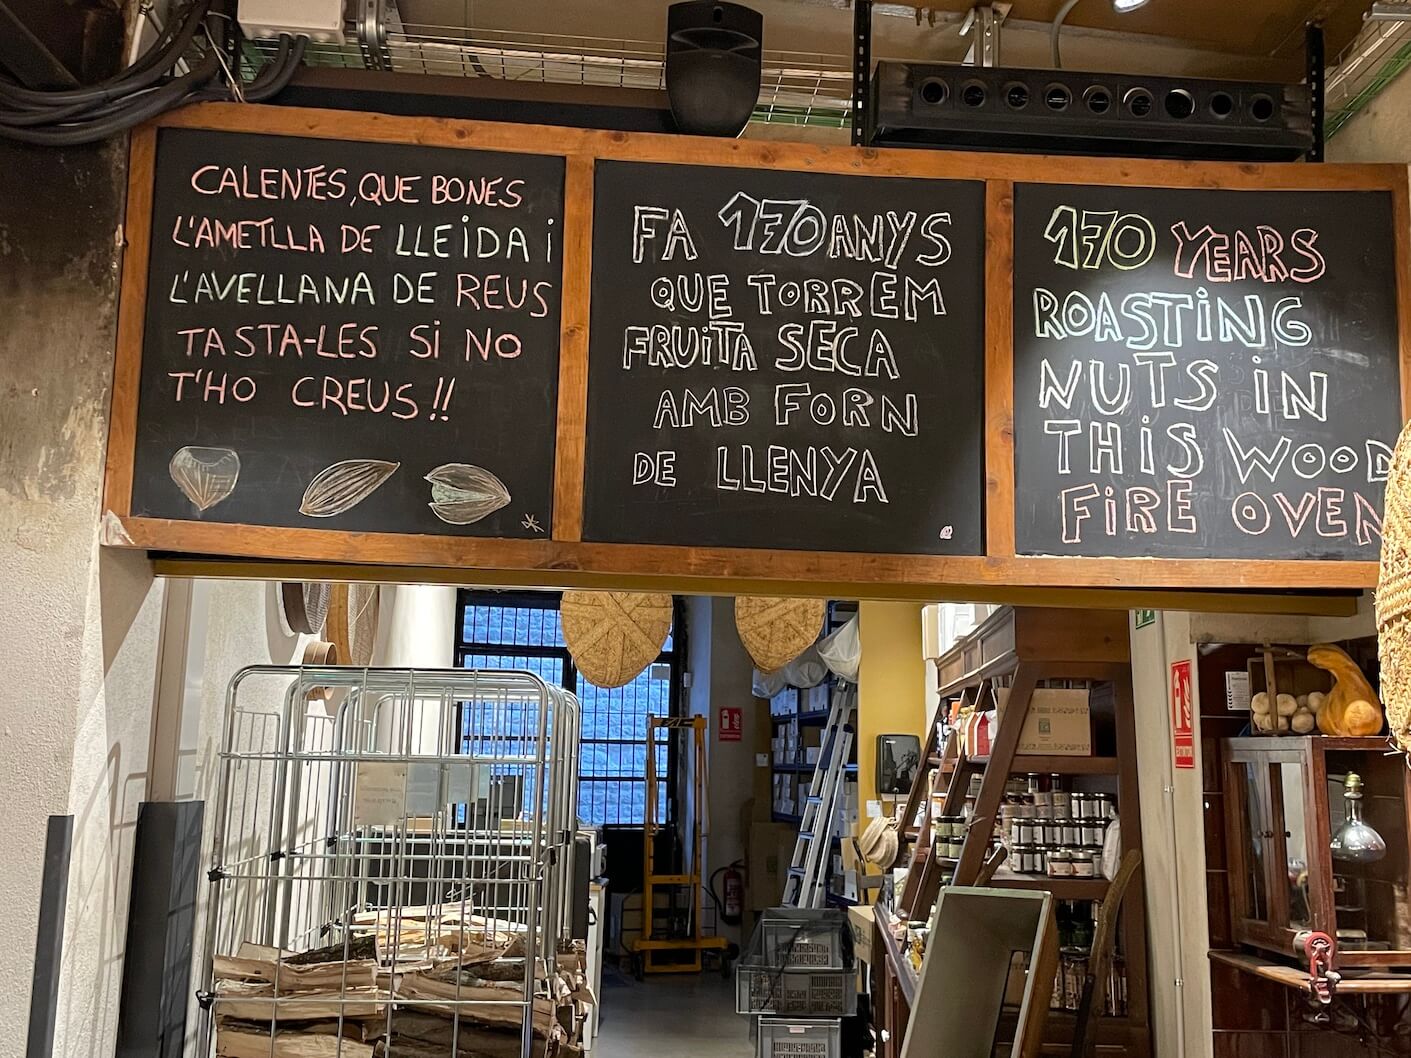 CALENTES, QUE BONES
L'AMETLLA DE LLEIDA I
L'AVELLANA DE REUS
TASTA-LES SI NO
T'HO CREUS!!
FA 170 ANYS
QUE TORREM
FRUITA SECA
AMB FORN
DE LLENYA
170 YEARS
ROASTING
NUTS IN
THIS WOOD
FIRE OVEN